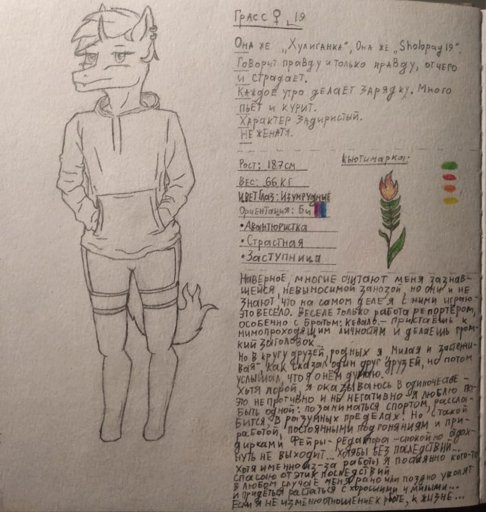 Грасс ♀, 19
Она же „Хулиганка", Она же „Sholopay19".
Говорит правду и только правду, от чего
и страдает.
Каждое утро делает зарядку. Много
пьёт и курит.
Характер Задиристый.
Не жената.
Рост: 187см
Вес: 66 кг
Цвет глаз: Изумрудные
Ориентация: Би
• Авантюристка
• Страстная
• Заступница
Кьютимарка:
Наверное, многие считают меня зазнав-
шейся, невыносимой занозой, но они и не
знают что на самом деле я с ними играю-
это весело. Веселе только работа репортёром,
особенно с братом: - пристаёшь к
мимопроходящим личностям и делаешь гром-
кий заголовок...
Но в кругу друзей, родных я милая и застенчи-
вая - как сказал один друг друзей, но потом
услышал, что я о нём думаю.
Хотя порой, я оказываюсь в одиночестве -
это не противно и не негативно - я люблю по-
быть одной: позаниматься спортом, рассла-
бится в разумных пределах! Но, с такой
работой, постоянными подгоняниями и при-
дирками Фетры - редактора - спокойно отдох-
нуть не выходит... хотябы без последствий...
Хотя именно из-за работы я постоянно кого-то
спасаю от этих последствий
В любом случае меня рано или поздно уволят
и придёться расстаться с хорошими и милыми...
Если я не изменю отношение к работе, к жизне...